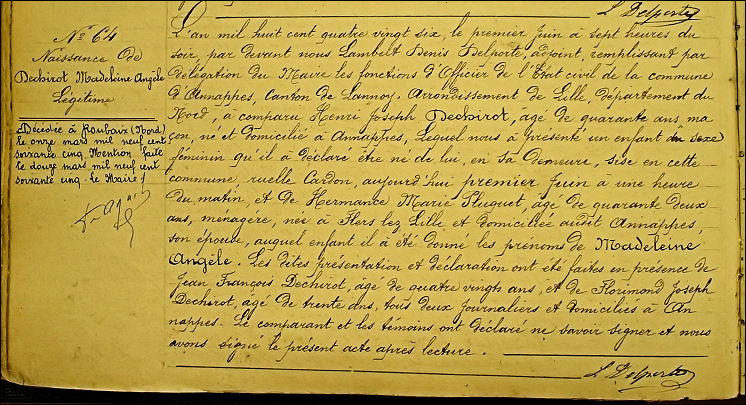 L. Delporte
N° 64
Naissance De
Dechirot Madeleine Angèle
Légitime
Décédée à Roubaix (Nord)
le onze mars mil neuf cent
soixante cinq. Mention faite
le douze mars mil neuf cent
soixante cinq. Le Maire /
L'an mil huit cent quatre vingt six, le premier Juin à sept heures du
soir, par devant nous Lambert Denis Delporte, adjoint, remplissant par
délégation du Maire les fonctions d'Officier de l'Etat civil de la commune
d'Annappes, Canton de Lannoy, Arrondissement de Lille, département du
Nord, a comparu Henri Joseph Dechirot, âgé de quarante ans, ma
çon, né et domicilié à Annappes, Lequel nous a présenté un enfant du sexe
féminin qu'il a déclaré être né de lui, en sa demeure, sise en cette
commune, ruelle Cardon, aujourd'hui premier Juin à une heure
du matin, et de Hermance Marie Pluquet, âgé de quarante deux
ans, ménagère, née à Flers lez Lille et domiciliée audit Annappes,
son épouse, auquel enfant il a été donné les prénoms de Madeleine
Angèle. Les dites présentation et déclaration ont été faites en présence de
Jean François Dechirot, âgé de quatre vingts ans, et de Florimond Joseph
Dechirot, âgé de trente ans, tous deux journaliers et domiciliés à An
nappes. Le comparant et les témoins ont déclaré ne savoir signer et nous
avons signé le présent acte après lecture.
L. Delporte